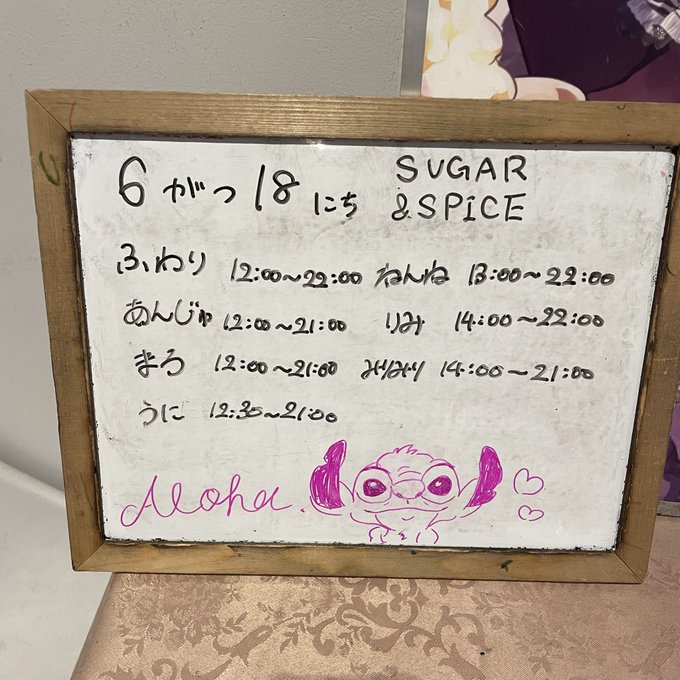 6がつ18にち
SUGAR
&SPICE
ふわり 12:00~22:00 ねんね 13:00~22:00
あんじゅ 12:00~21:00 りみ 14:00~22:00
まろ 12:00~21:00 みりみり 14:00~21:00
うに 12:30~21:00
Aloha.